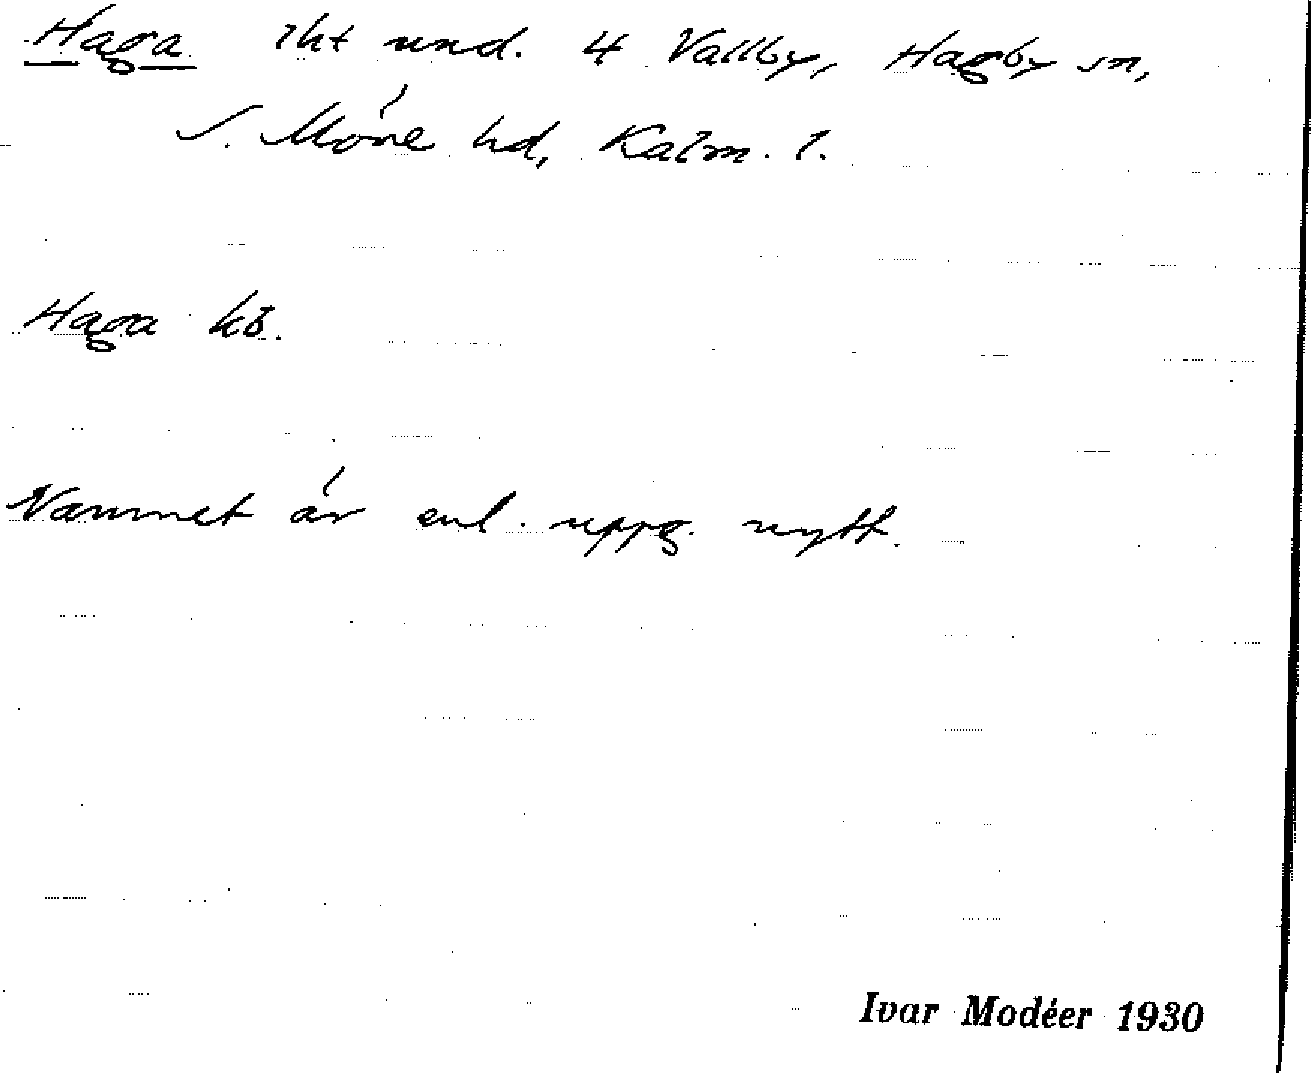 Haga lht und. 4 Vallby, Hagby sn,
S. Möre hd, Kalm. l.
Haga kö.
Namnet är enl. uppg. nytt.
Ivar Modéer 1930